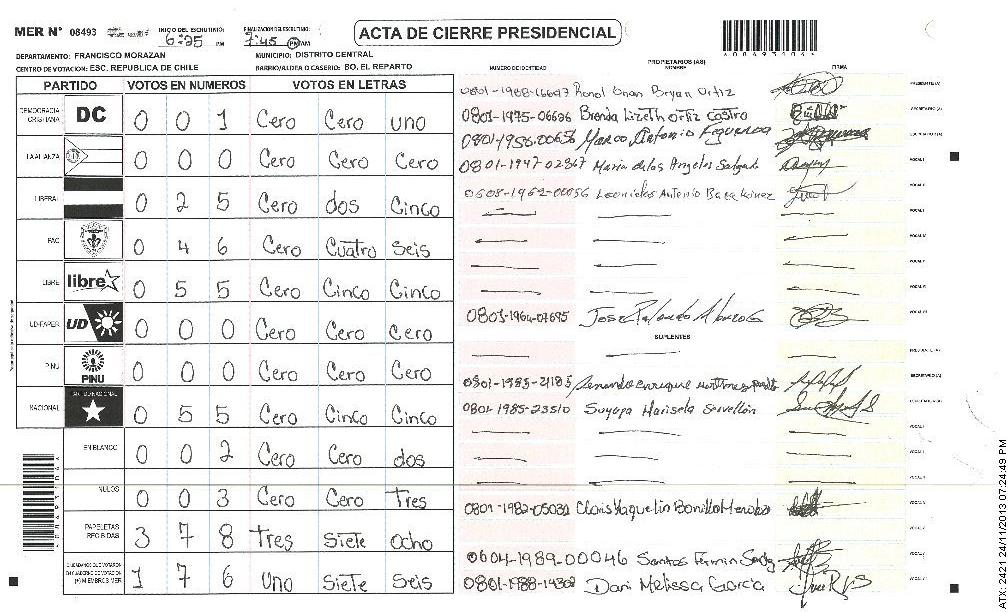 MER N° 08493
INICIO DEL ESCRUTINIO: 6:25 PM
FINALIZACION DEL ESCRUTINIO: 7:45 PM AM
ACTA DE CIERRE PRESIDENCIAL
DEPARTAMENTO: FRANCISCO MORAZAN
MUNICIPIO: DISTRITO CENTRAL
CENTRO DE VOTACION: ESC. REPUBLICA DE CHILE
BARRIO/ALDEA O CASERIO: BO. EL REPARTO
PARTIDO VOTOS EN NUMEROS VOTOS EN LETRAS
DEMOCRACIA CRISTIANA DC 0 0 1 Cero Cero uno
LA ALIANZA 0 0 0 Cero Cero Cero
LIBERAL 0 2 5 Cero dos Cinco
PAC 0 4 6 Cero Cuatro Seis
LIBRE libre 0 5 5 Cero Cinco Cinco
UD-FAPER UD 0 0 0 Cero Cero Cero
PINU PINU 0 0 0 Cero Cero Cero
NACIONAL PARTIDO NACIONAL 0 5 5 Cero Cinco Cinco
EN BLANCO 0 0 2 Cero Cero dos
NULOS 0 0 3 Cero Cero Tres
PAPELETAS RECIBIDAS 3 7 8 Tres Siete ocho
CIUDADANOS QUE VOTARON EN CUADERNO DE VOTACION (+) MIEMBROS MER 1 7 6 Uno Siete Seis
NUMERO DE IDENTIDAD PROPIETARIOS (AS) NOMBRE FIRMA
0801-1988-16697 Ronol Onan Bryan Ortiz PRESIDENTE (A)
0801-1975-06696 Brenda Lizeth ortiz castro SECRETARIO (A)
0801-1958-00656 Marco Antonio Figueroa
0801-1947-02367 Maria delos Angeles Salgado VOCAL I
0608-1962-00056 Leonidas Antonio
0801-1964-07695 Jose Rolando
SUPLENTES
PRESIDENTE (A)
0801-1983-21185 enrique SECRETARIO (A)
0801-1985-23510 Suyapa Marisela Servellón
0801-1982-05031 Bonilla
0604-1989-00046 Santos Fermin
0801-1988-14362 Dani Melissa Garcia
ATX-2421 24/11/2013 07:24:49 PM